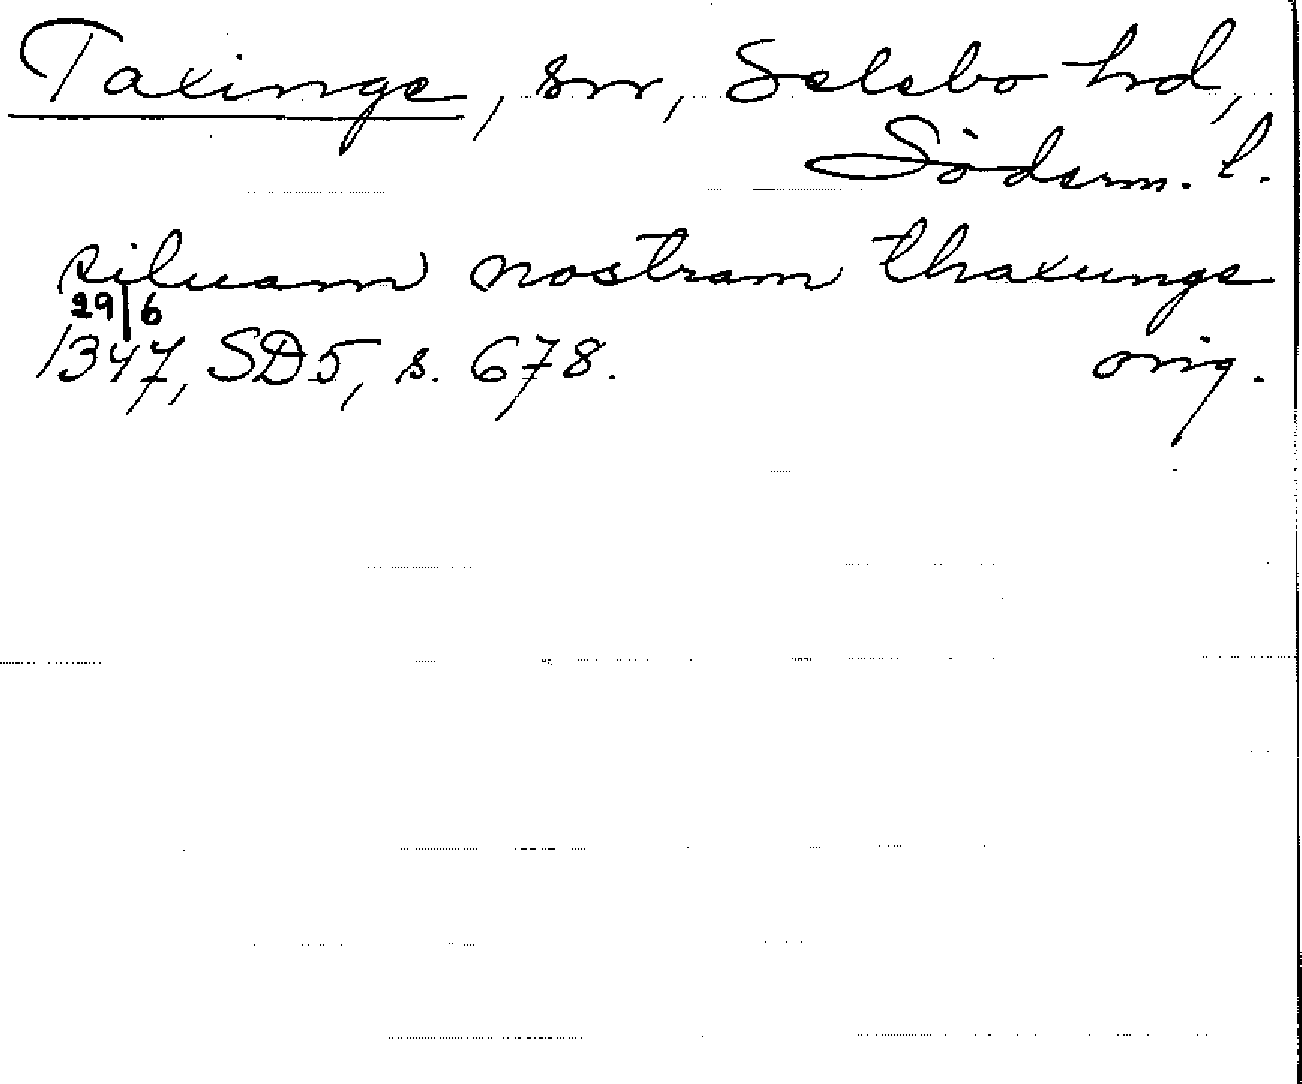 Taxinge, sn, Selebo hd,
Söderm. l.
siluam nostram thaxunge
29/6
1347, SD5, s. 678. orig.